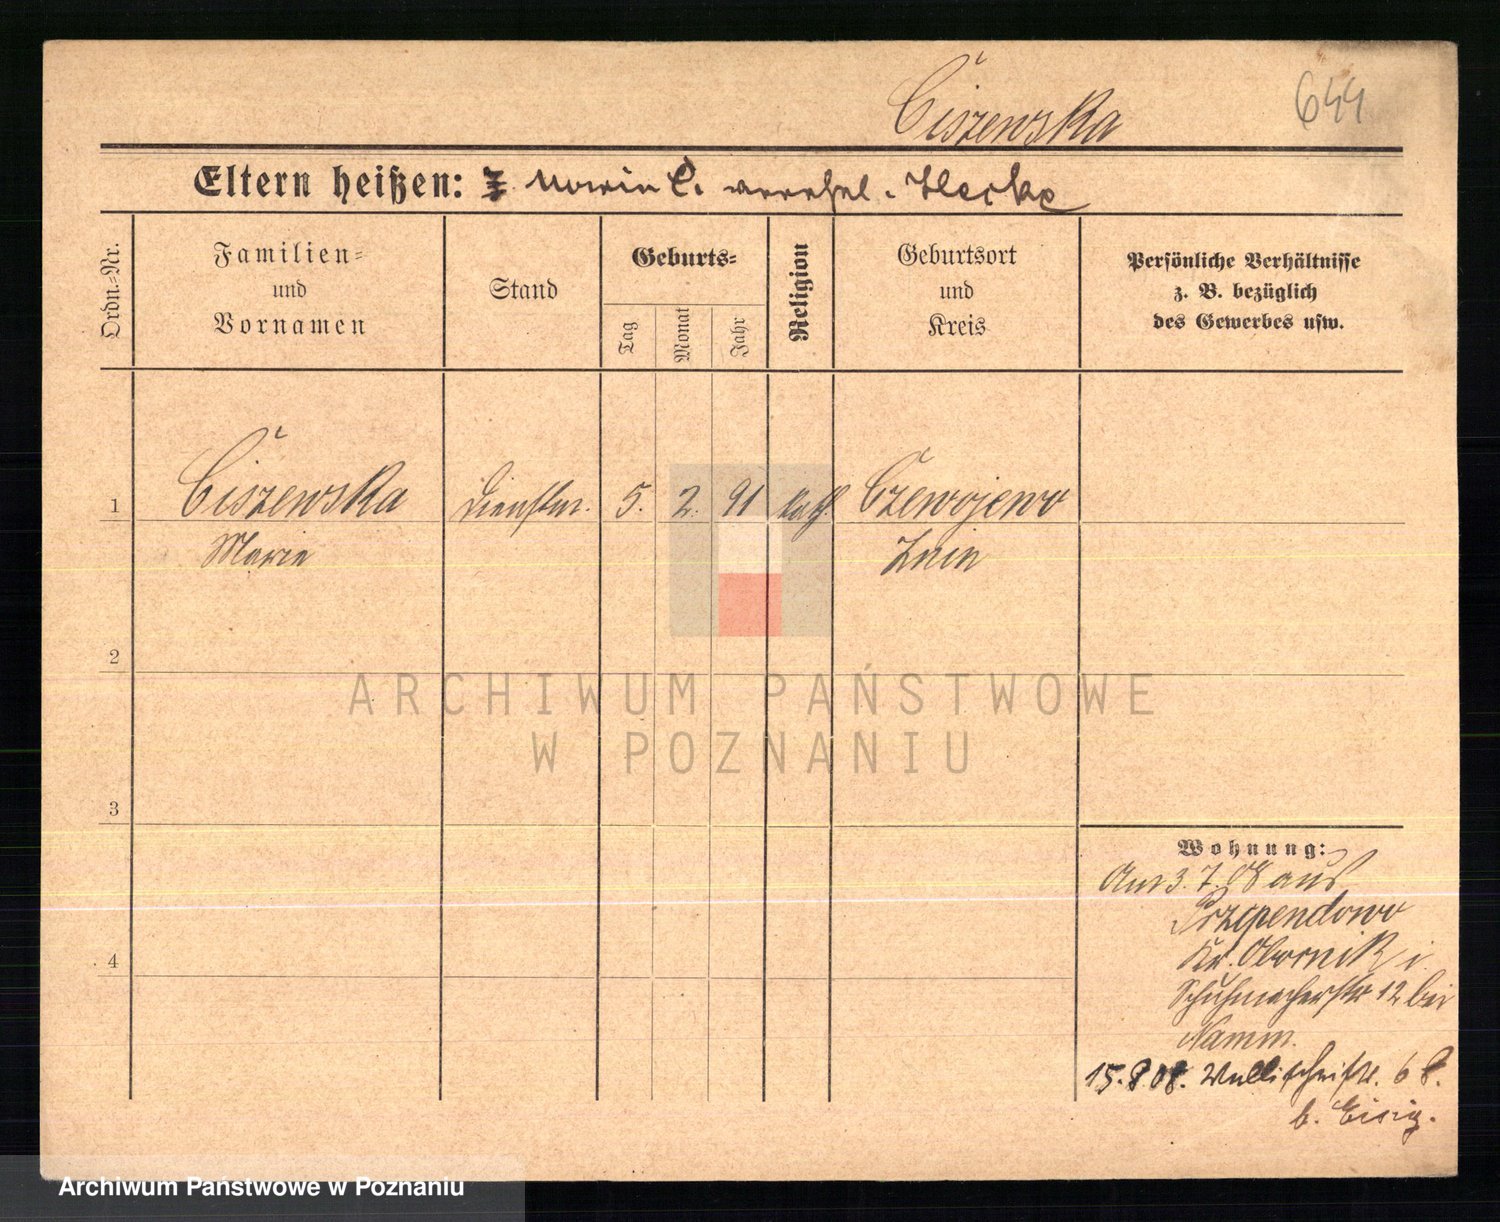 Ciszewska
644
Eltern heißen: Marie C. verehel. Hecke
Ordn.-Nr.
Familien-
und
Vornamen
Stand
Geburts-
Tag
Monat
Jahr
Religion
Geburtsort
und
Kreis
Persönliche Verhältnisse
z. B. bezüglich
des Gewerbes usw.
1 Ciszewska Dienstm. 5. 2. 91 kath. Czewojewo
Marie Znin
2
ARCHIWUM PAŃSTWOWE
W POZNANIU
3
Wohnung:
Am 3.7.08 aus
Przependowo
Kr. Obornik i.
Schuhmacherstr 12 bei
Namm.
4
15.8.08. Wallischeistr. 68.
b. Eisig.
Archiwum Państwowe w Poznaniu